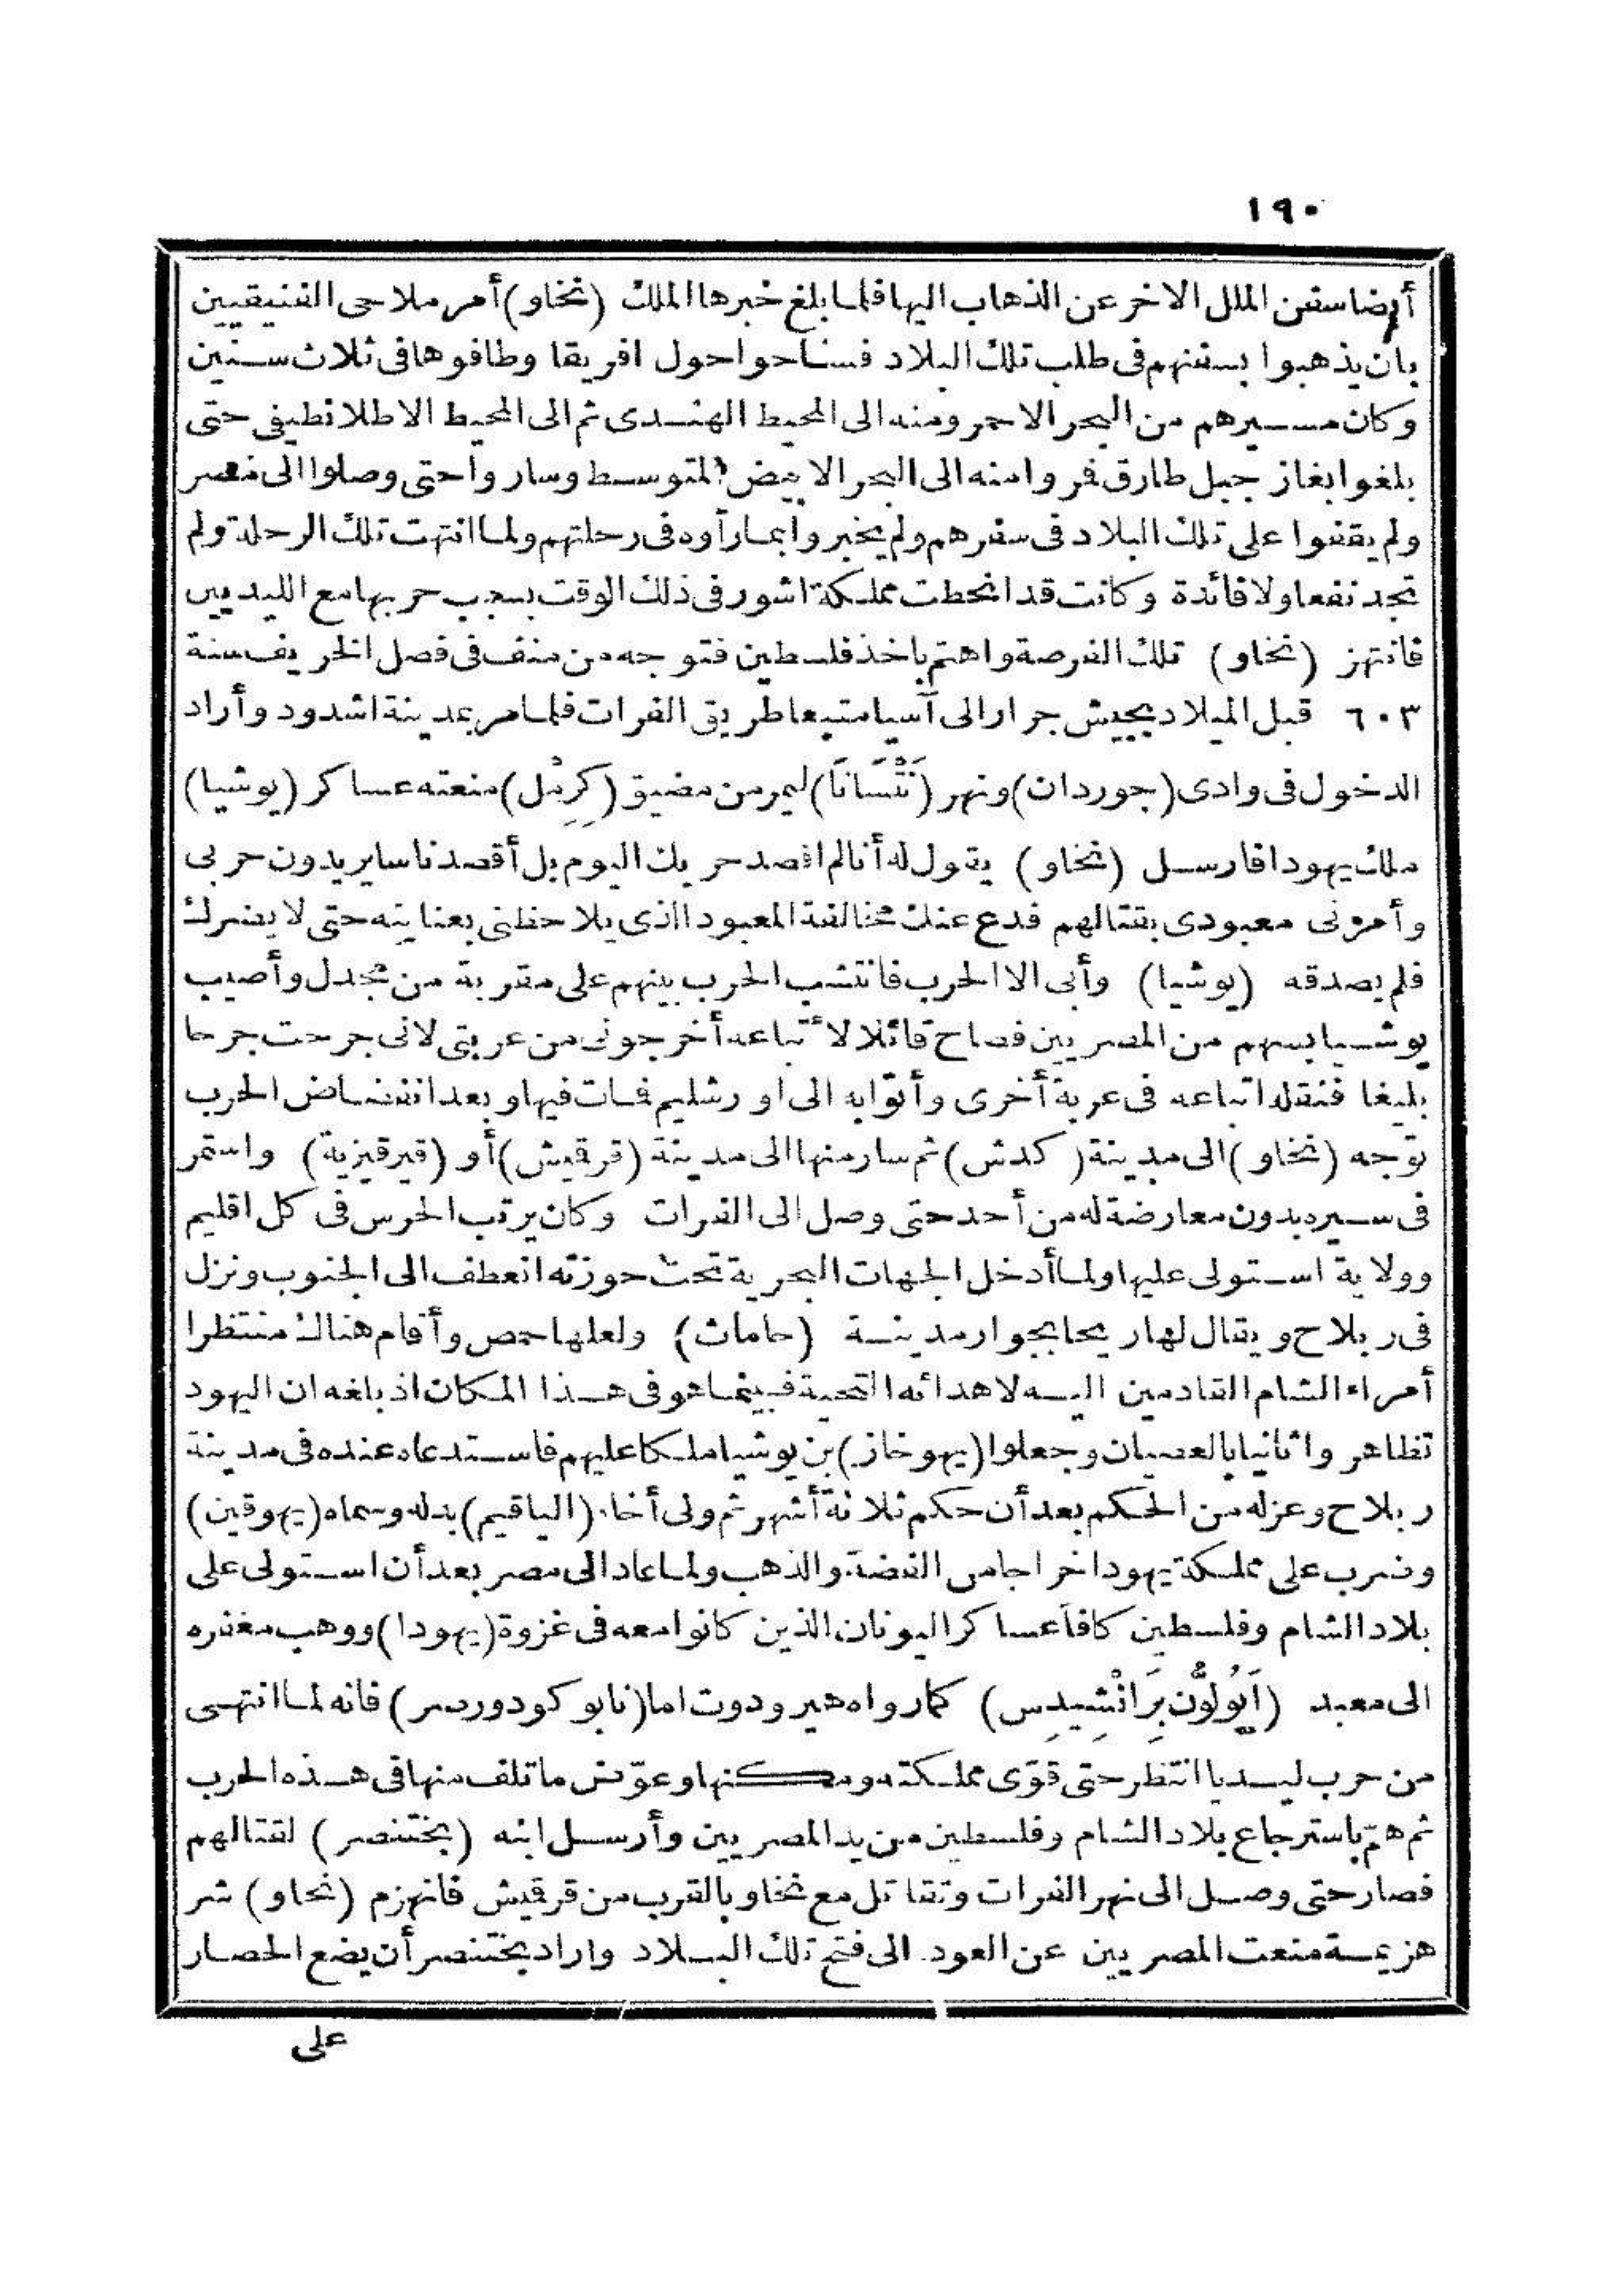 ١٩٠
أيضا سفن الملل الاخر عن الذهاب اليها فلما بلغ خبرها الملك (نخاو) أمر ملاحى الفنيقيين
بان يذهبوا بسفنهم فى طلب تلك البلاد فساحوا حول افريقا وطافوها فى ثلاث سنين
وكان مسيرهم من البحر الاحمر ومنه الى المحيط الهندى ثم الى المحيط الاطلانطيقى حتى
بلغوا بغاز جبل طارق فروا منه الى البحر الابيض المتوسط وساروا حتى وصلوا الى مصر
ولم يقفوا على تلك البلاد فى سفرهم ولم يخبروا بما رآوه فى رحلتهم ولما انتهت تلك الرحلة ولم
تجد نفعا ولا فائدة وكانت قد انحطت مملكة اشور فى ذلك الوقت بسبب حربها مع الليديين
فانتهز (نخاو) تلك الفرصة واهتم باخذ فلسطين فتوجه من منف فى فصل الخريف سنة
٦٠٣ قبل الميلاد بجيش جرار الى آسيا متبعا طريق الفرات فلما مر بمدينة اشدود وأراد
الدخول فى وادى (جوردان) ونهر (نَتْسَانَا) ليمر من مضيق (كِرِمْل) منعته عساكر (يوشيا)
ملك يهودا فارسل (نخاو) يقول له أنا لم اقصد حربك اليوم بل أقصد ناسا يريدون حربى
وأمرنى معبودى بقتالهم فدع عنك مخالفة المعبود الذى يلاحظنى بعنايته حتى لا يضرك
فلم يصدقه (يوشيا) وأبى الا الحرب فانتشب الحرب بينهم على مقربة من مجدل وأصيب
يوشيا بسهم من المصريين فصاح قائلا لأتباعه أخرجونى من عربتى لانى جرحت جرحا
بليغا فنقله اتباعه فى عربة أخرى وأتوا به الى اورشليم فات فيها وبعد انفضاض الحرب
توجه (نخاو) الى مدينة (كدش) ثم سار منها الى مدينة (قرقيش) أو (قيرقيزية) واستمر
فى سيره بدون معارضة له من أحد حتى وصل الى الفرات وكان يرتب الحرس فى كل اقليم
وولاية استولى عليها ولما أدخل الجهات البحرية تحت حوزته انعطف الى الجنوب ونزل
فى ربلاح ويقال لها ريحا بجوار مدينة (حامات) ولعلها حمص وأقام هناك منتظرا
أمراء الشام القادمين اليه لاهدائه التحية فبينما هو فى هذا المكان اذ بلغه ان اليهود
تظاهروا ثانيا بالعصيان وجعلوا (يهوخاز) بن يوشيا ملكا عليهم فاستدعاه عنده فى مدينة
ربلاح وعزله من الحكم بعد أن حكم ثلاثة أشهر ثم ولى أخاه (الياقيم) بدله وسماه (يهوقين)
وضرب على مملكة يهودا خراجا من الفضة والذهب ولما عاد الى مصر بعد أن استولى على
بلاد الشام وفلسطين كافأ عساكر اليونان الذين كانوا معه فى غزوة (يهودا) ووهب مغفره
الى معبد (اَپُولُّون بَرَانْشِيدِس) كما رواه هيرودوت اما (نابوكودورصر) فانه لما انتهى
من حرب ليديا انتظر حتى قوّى مملكته ومكنها وعوّض ما تلف منها فى هذه الحرب
ثم همّ باسترجاع بلاد الشام وفلسطين من يد المصريين وأرسل ابنه (بختنصر) لقتالهم
فصار حتى وصل الى نهر الفرات وتقاتل مع نخاو بالقرب من قرقيش فانهزم (نخاو) شر
هزيمة منعت المصريين عن العود الى فتح تلك البلاد واراد بختنصر أن يضع الحصار
على